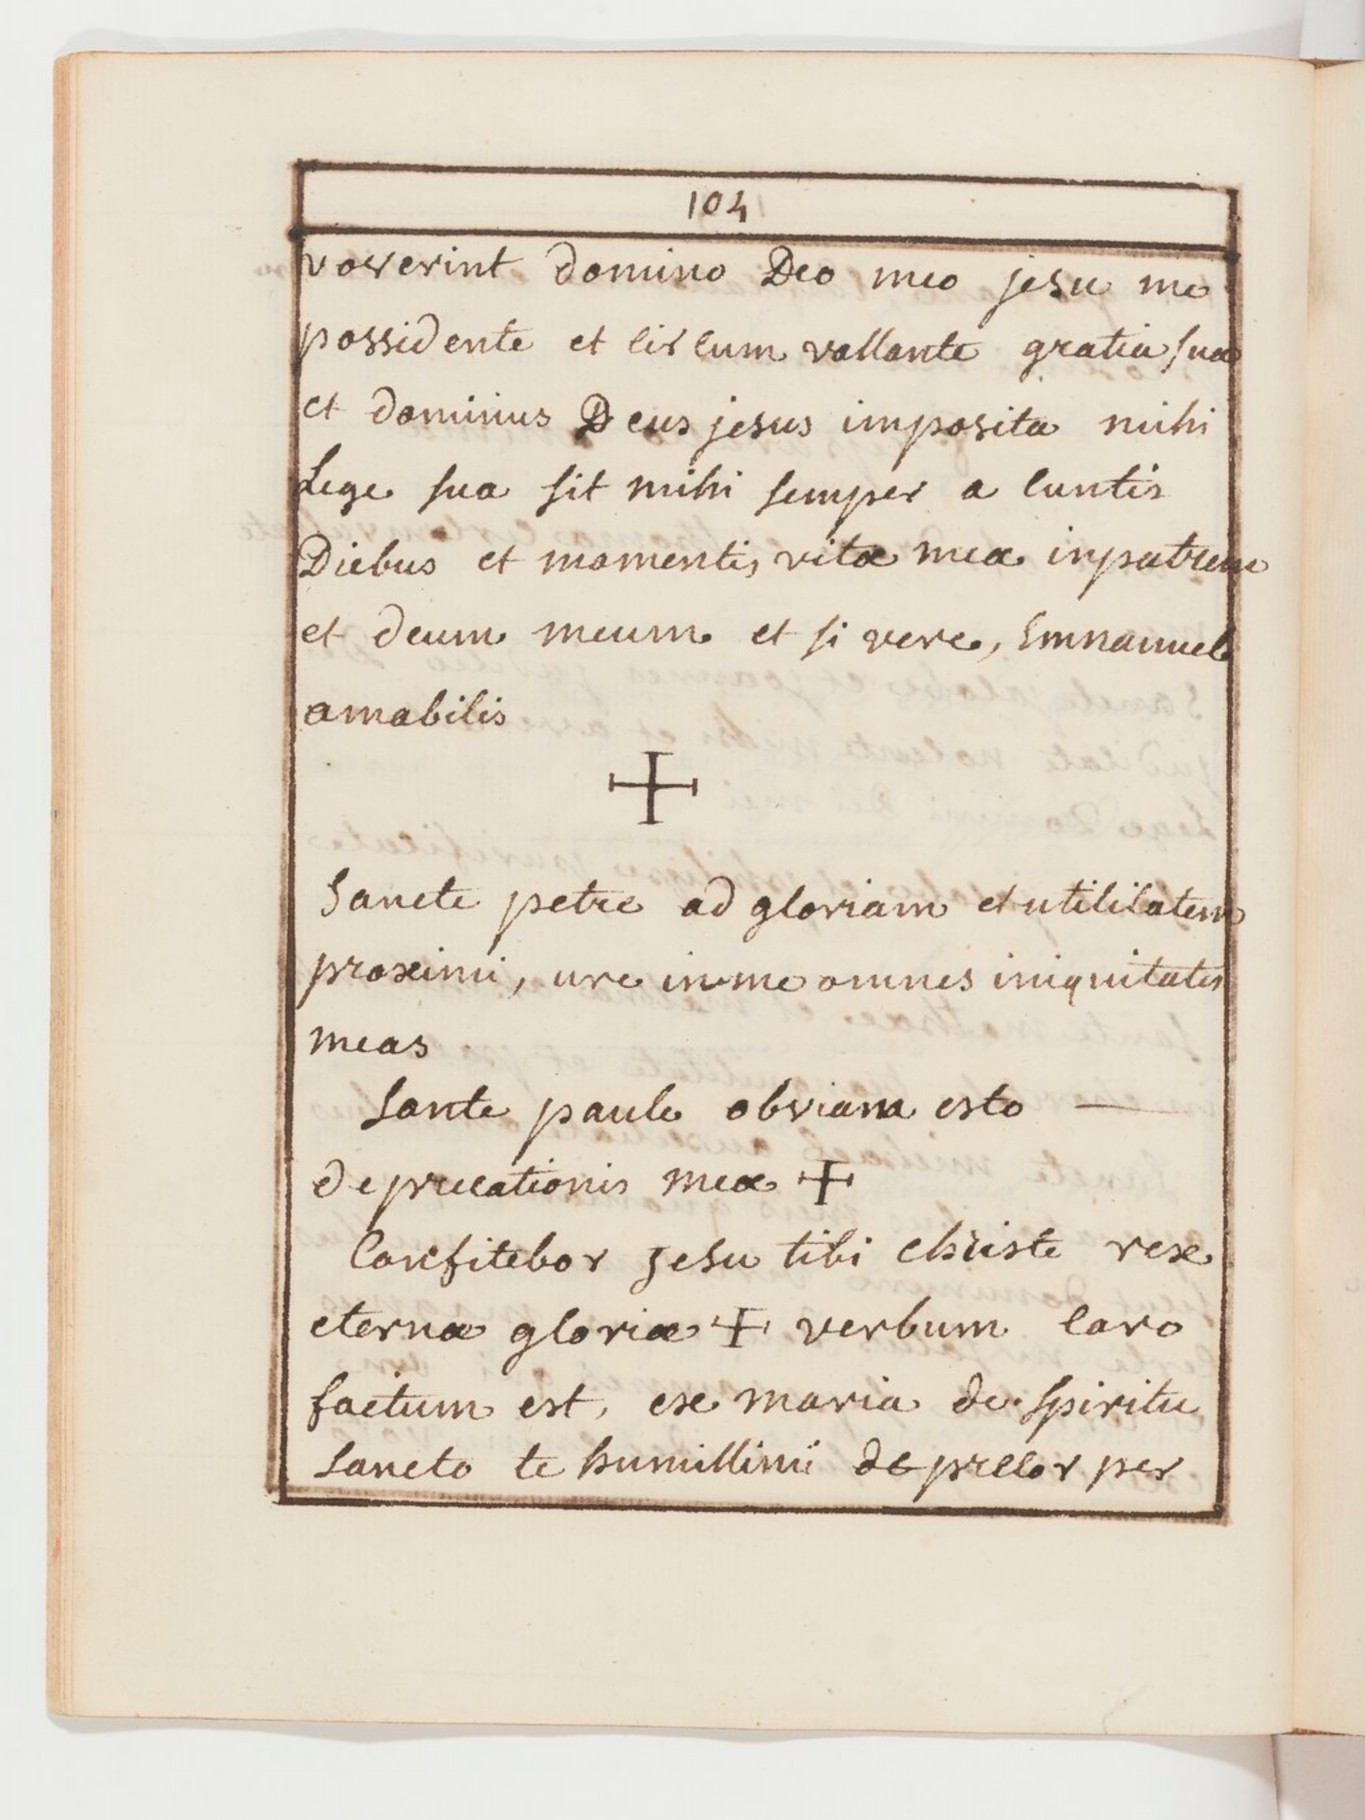 104
voverint domino Deo meo jesu me
possidente et circum vallante gratia sua
et dominus Deus jesus imposita mihi
Lege sua sit mihi semper a cuntis
Diebus et momentis vitæ meæ inpatrem
et deum meum et si vere, Emnanuel
amabilis
+
Sancte petre ad gloriam et utilitatem
proximi, ure in me omnes iniquitates
meas
Sante paule obviam esto —
deprecationis meæ +
Confitebor Jesu tibi christe rex
eternæ gloriæ + verbum caro
factum est, ex maria de spiritu
Sancto te humillimi deprecor per